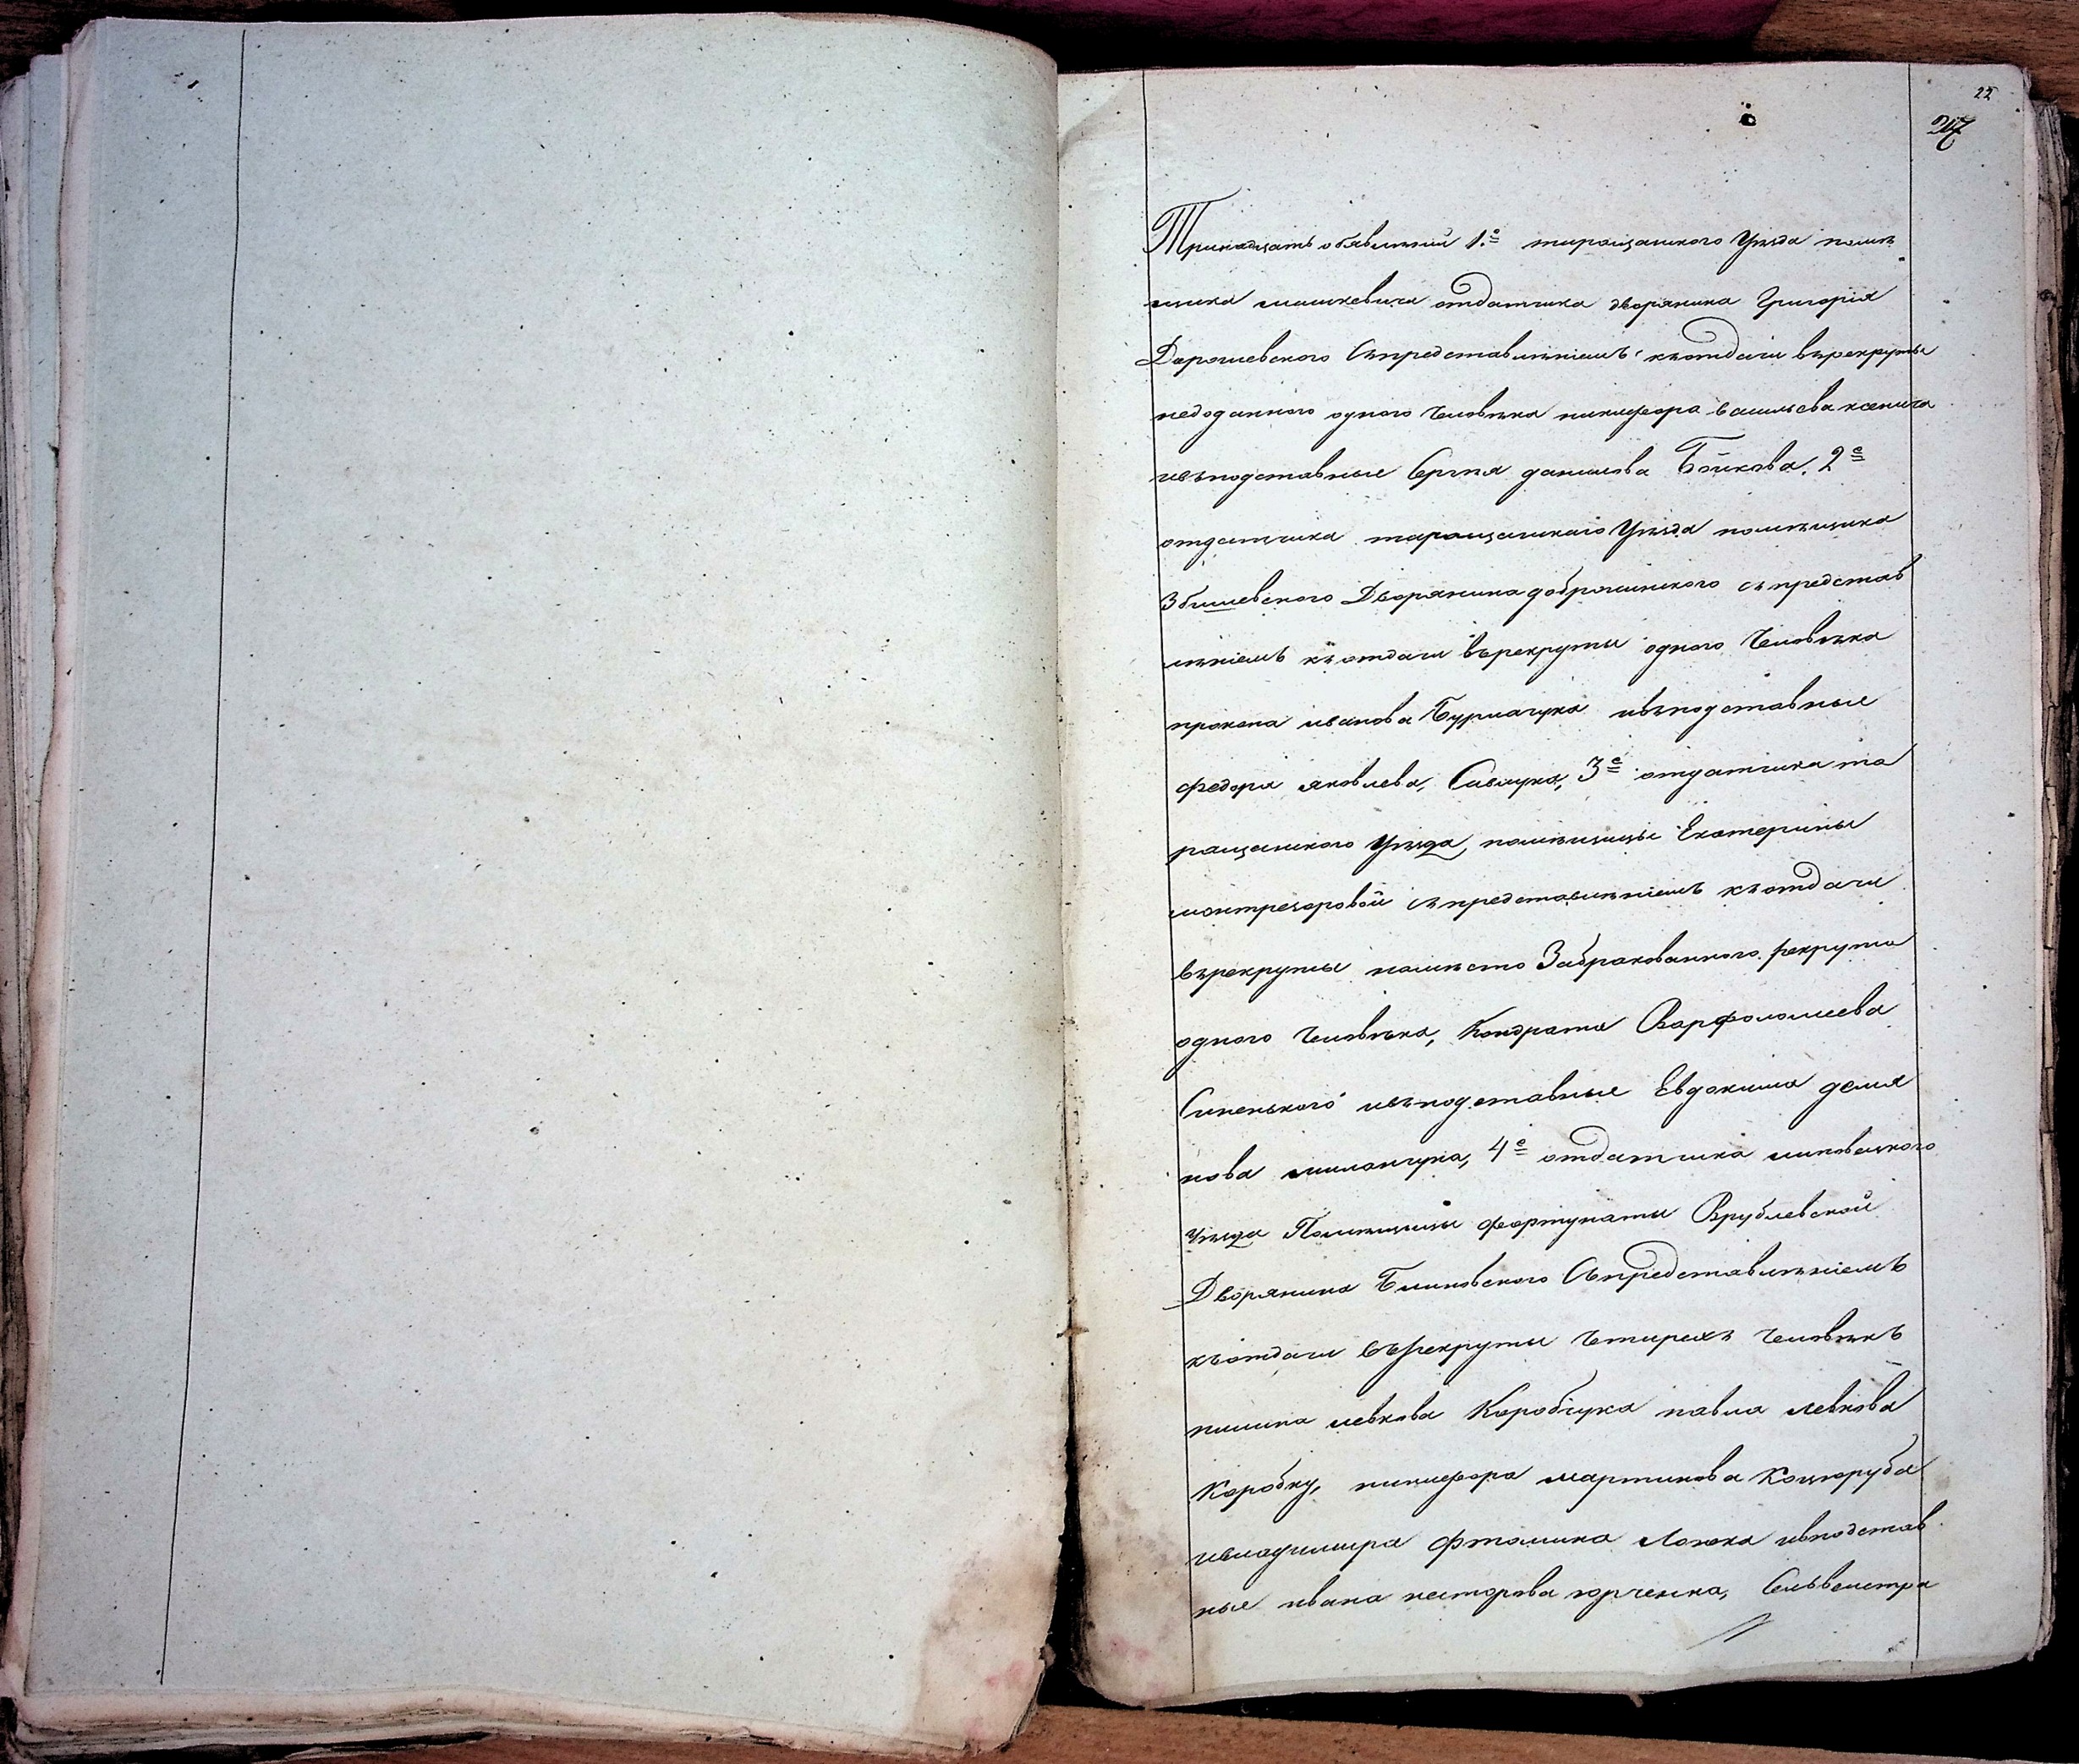 22
247
Тринадцать объявленій 1.е таращанского Уѣзда помѣ
щика машкевича отдатчика дворянина Григорія
Дорошевского съпредставлѣніемъ къотдачи върекруты
недоданного одного человѣка никифора васильева
ивъподставные Сргѣя данилова Бойкова, 2е
отдатчика таращанскаго Уѣзда помѣщика
Збишевского Дворянина добрачинского съпредстав
лѣніемъ къотдачи върекруты одного человѣка
прокопа иванова Бурлачука ивъподставные
федора яковлева, Савчука, 3е отдатчика та
ращанского Уѣзда, помѣщицы Екатерины
монтрезоровой съпредставлѣніемъ къотдачи
върекруты намѣсто Забракованного рекрута
одного человѣка, Кондрата Варфоломеева
Синенького ивъподставные Евдокима демя
нова миланчука, 4е отдатчика липовецкого
уѣзда Помѣщицы фортунаты Врублевской
Дворянина Блиновского Съпредставлѣніемъ
къотдачи върекруты четирехъ человѣкъ
пилипа левкова Коробчука павла левкова
Коробку, никифора мартинова Коцюруба
ивладимира Лонюка ивподстав
ные ивана несторова юрченка, Сильвестра